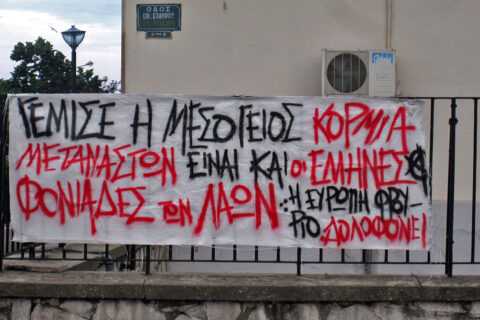 ΟΔΟΣ
ΓΕΜΙΣΕ Η ΜΕΣΟΓΕΙΟΣ ΚΟΡΜΙΑ
ΜΕΤΑΝΑΣΤΩΝ ΕΙΝΑΙ ΚΑΙ ΟΙ ΕΛΛΗΝΕΣ
ΦΟΝΙΑΔΕΣ ΤΩΝ ΛΑΩΝ :: Η ΕΥΡΩΠΗ ΦΡΟΥ-
ΡΙΟ ΔΟΛΟΦΟΝΕΙ